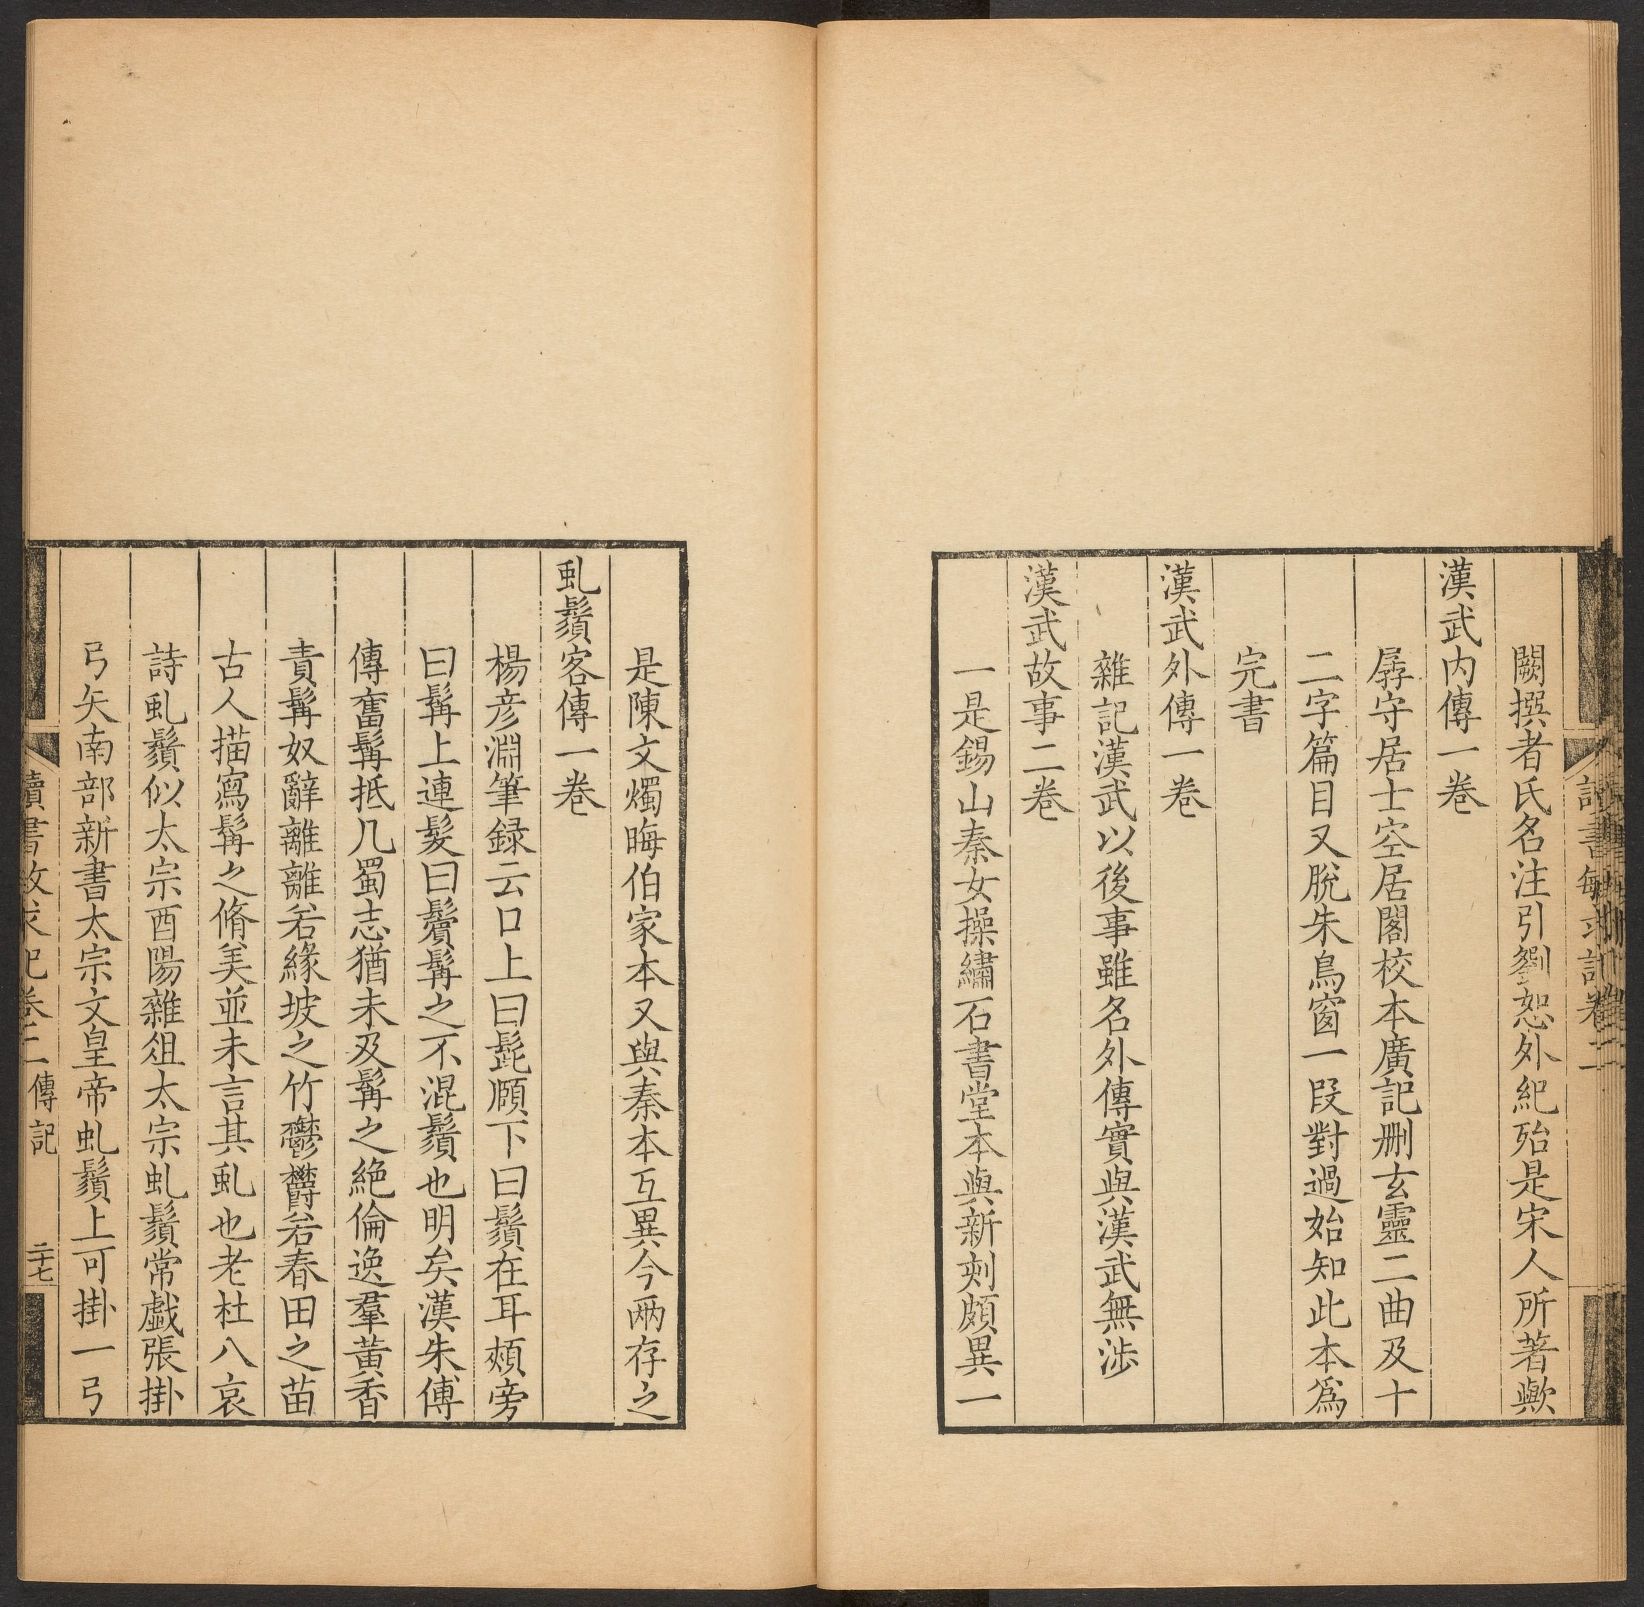 闕撰者氏名注引劉恕外紀殆是宋人所著歟
漢武内傳一卷
孱守居士空居閣校本廣記删玄靈二曲及十
二字篇目又脫朱鳥窗一段對過始知此本爲
完書
漢武外傳一卷
雜記漢武以後事雖名外傳實與漢武無涉
漢武故事二卷
一是錫山秦女操繡石書堂本與新刻頗異一
是陳文燭晦伯家本又與秦本互異今兩存之
虬鬚客傳一卷
楊彦淵筆録云口上曰髭頤下曰鬚在耳頰旁
曰髯上連髮曰鬢髯之不混鬚也明矣漢朱傅
傳奮髯抵几蜀志猶未及髯之絶倫逸羣黃香
責髯奴辭離離若緣坡之竹鬱鬱若春田之苗
古人描寫髯之脩美並未言其虬也老杜八哀
詩虬鬚似太宗酉陽雜俎太宗虬鬚常戲張掛
弓矢南部新書太宗文皇帝虬鬚上可掛一弓
讀書敏求記卷二 傳記 二十七